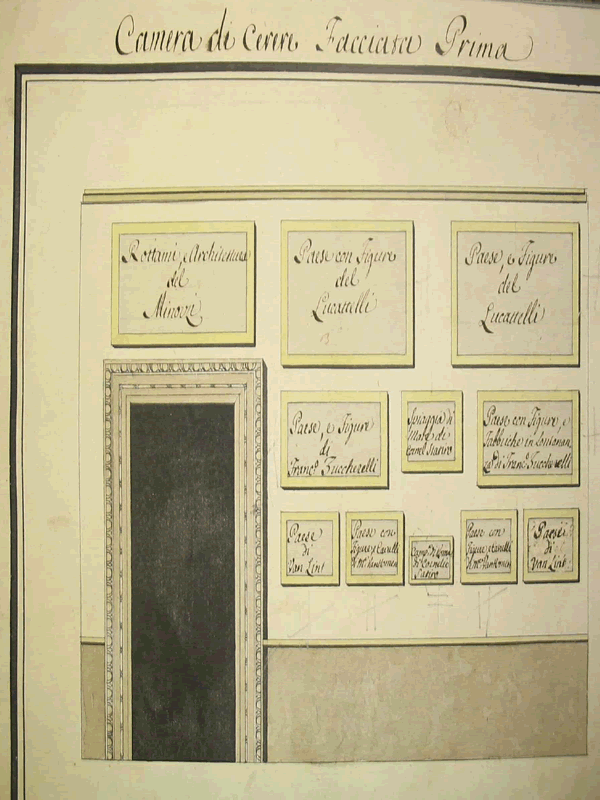 Camera di Cerere Facciata Prima
Rottami, e Architetture
del
Minozzi
Paese con Figure
del
Lucattelli
Paese, e Figure
del
Lucattelli
Paese, e Figure
di
Franc.º Zuccherelli
Spiaggia di
Mare di
Paese con Figure, e
Fabbriche in lontanan
za di Franc.º Zuccherelli
Paese
di
Van Lint
Paese con
Figure, e Cavalli
di Cornelio
Paese con
Figure, e Cavalli
Paese
di
Van Lint